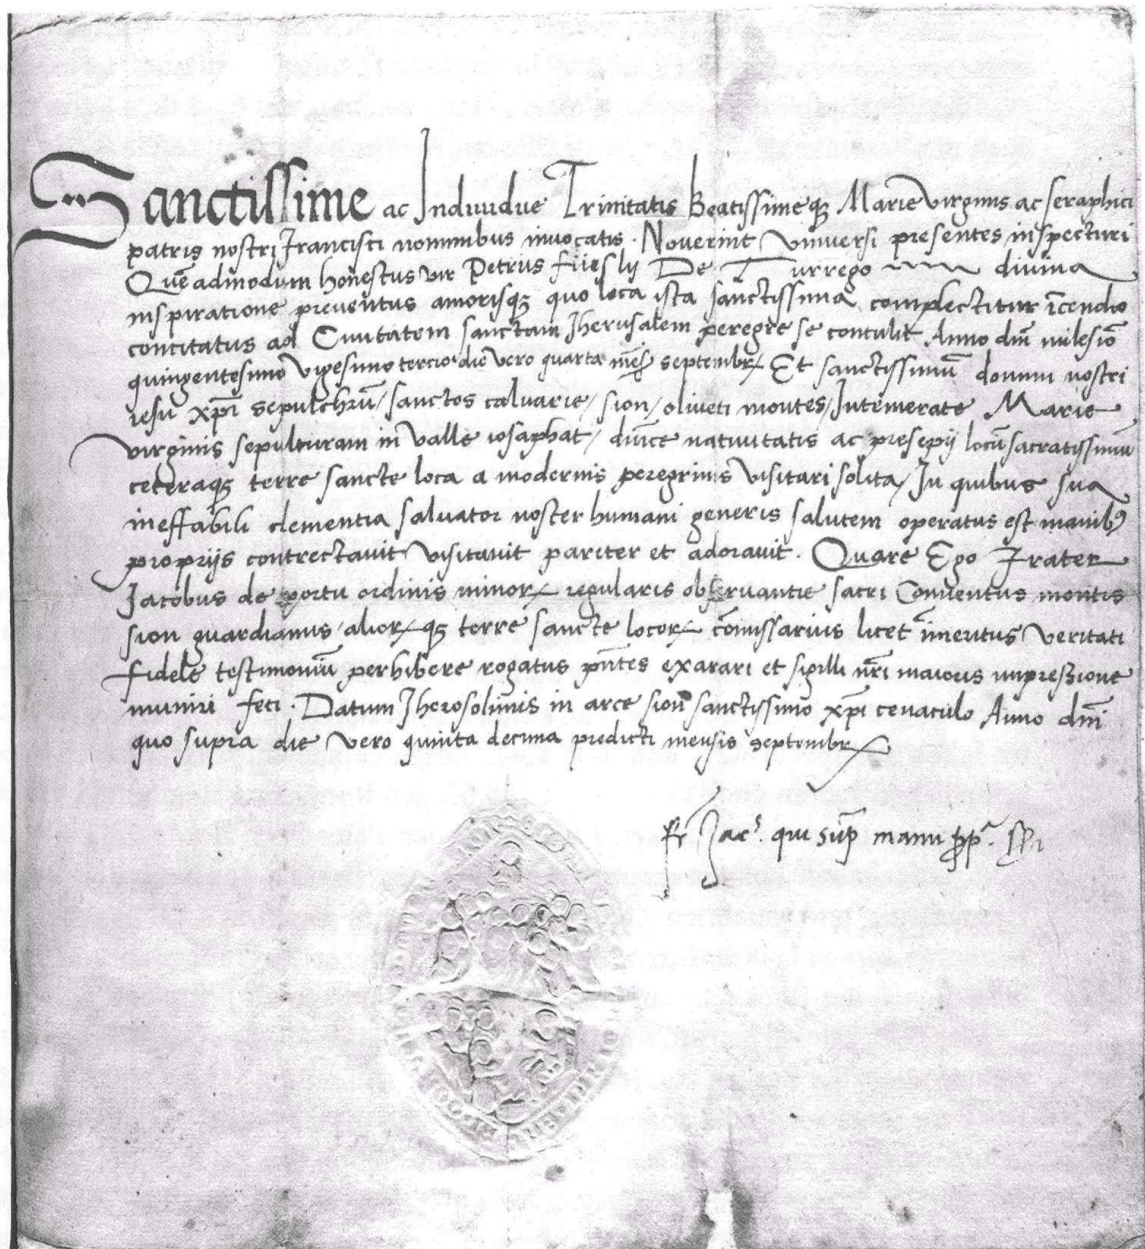 Sanctissime ac Indiuidue Trinitatis Beatissimeq₃ Marie virginis ac seraphici
patris nostri Francisci nominibus inuocatis. Nouerint vniuersi presentes inspecturi
Quē admodum honestus vir Petrus füeslij De Turrego diuina
inspiratione preuentus amorisq₃ quo loca ista sanctissima complectitur īcendio
concitatus ad Ciuitatem sanctam Iherusalem peregre se contulit Anno dnī milesīo
quingentesimo vigesimo tercio die vero quarta mēs septembr Et sanctissimū domini nostri
iesu xpī sepulchrū / sanctos caluarie / sion / oliueti montes / Intemerate Marie
virginis sepulturam in valle iosaphat / diuīce natiuitatis ac presepij locū sacratissimū
ceteraq₃ terre sancte loca a modernis peregrinis visitari solita / In quibus sua
ineffabili clementia saluator noster humani generis salutem operatus est manibꝰ
proprijs contrectauit visitauit pariter et adorauit. Quare Ego Frater
Jacobus de portu ordinis minorꝝ regularis obseruantie sacri Conuentus montis
sion guardianus / aliorꝝ q₃ terre sancte locorꝝ cōmissarius licet īmeritus veritati
fidele testimoniū perhibere rogatus pn̄tes exarari et sigilli nr̄i maioris impressione
muniri feci. Datum Iherosolimis in arce sion sanctissimo xpī cenaculo Anno dnī
quo supra die vero quinta decima predicti mensis septembr
fr Jacˢ. qui sup̄ manu ꝓpᵃ.